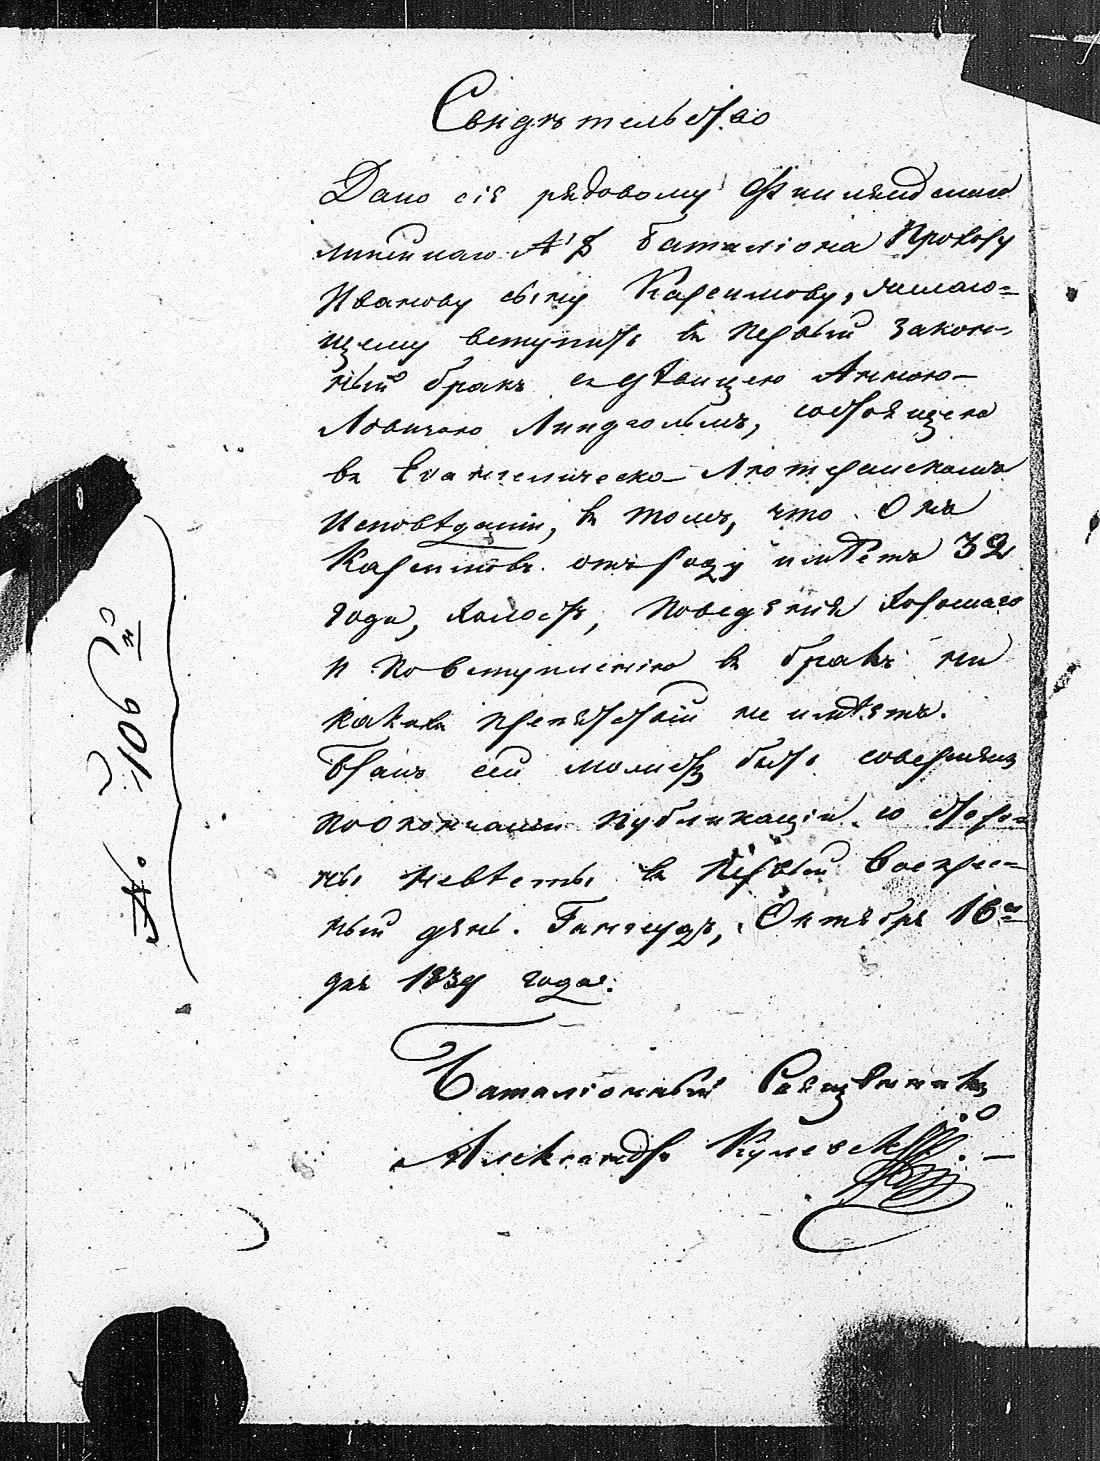 Свидѣтельство
Дано сіе рядовому Финляндскаго
линейнаго № 8 баталіона Прохору
Иванову сыну Карсимову, желаю=
щему вступить въ первый закон-
ный бракъ съ дѣвицею Анною-
Ловизою Линдгольмъ, состоящею
въ Евангелическо-Лютеранскомъ
Исповѣданіи, въ томъ, что Онъ
Карсимовъ отъ роду имѣетъ 32
года, холостъ, поведенія хорошаго
и по вступленію въ бракъ ни
какихъ препятствій не имѣетъ.
Бракъ сей можетъ быть совершенъ
по окончаніи публикаціи со сторо=
ны невѣсты въ первый воскрес=
ный день. Гангеудъ, Октября 16го
дня 1839 года.
Баталіонный Священникъ
Александръ
№ 106й